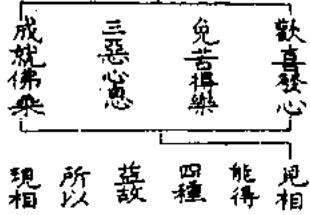 歡喜發心
免苦得樂
三惡心息
成就佛乘
見相
能得
四種
益故
所以
現相